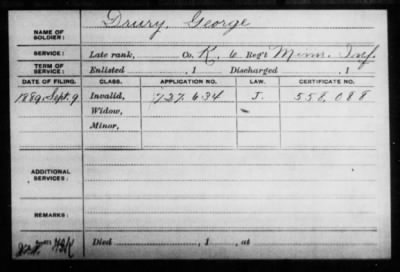 Drury, George
NAME OF SOLDIER:
SERVICE: Late rank, Co. K, 6 Reg't Minn. Inf.
TERM OF SERVICE: Enlisted , 1 Discharged , 1
DATE OF FILING. CLASS. APPLICATION NO. LAW. CERTIFICATE NO.
1889, Sept. 9 Invalid, 727.634 J. 558,088
Widow,
Minor,
ADDITIONAL SERVICES:
REMARKS:
Died , 1 , at